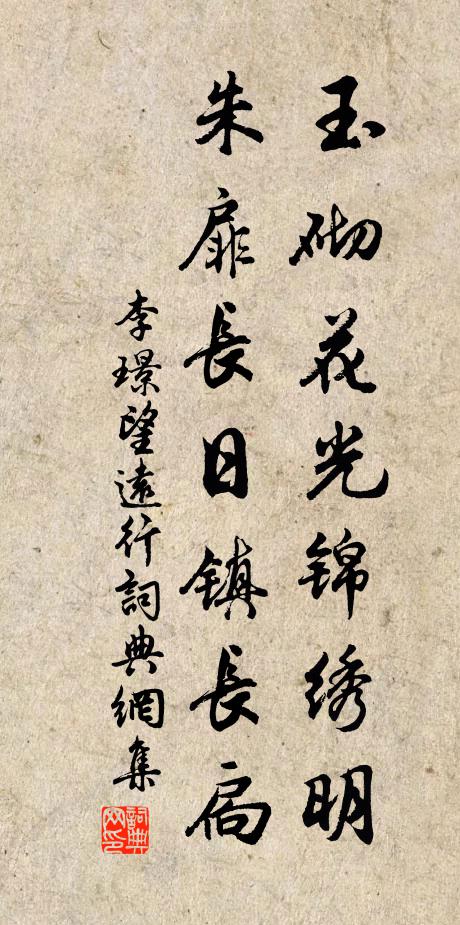 玉砌花光锦绣明
朱扉長日镇長扃
李璟望遠行詞典網集
詞典网印